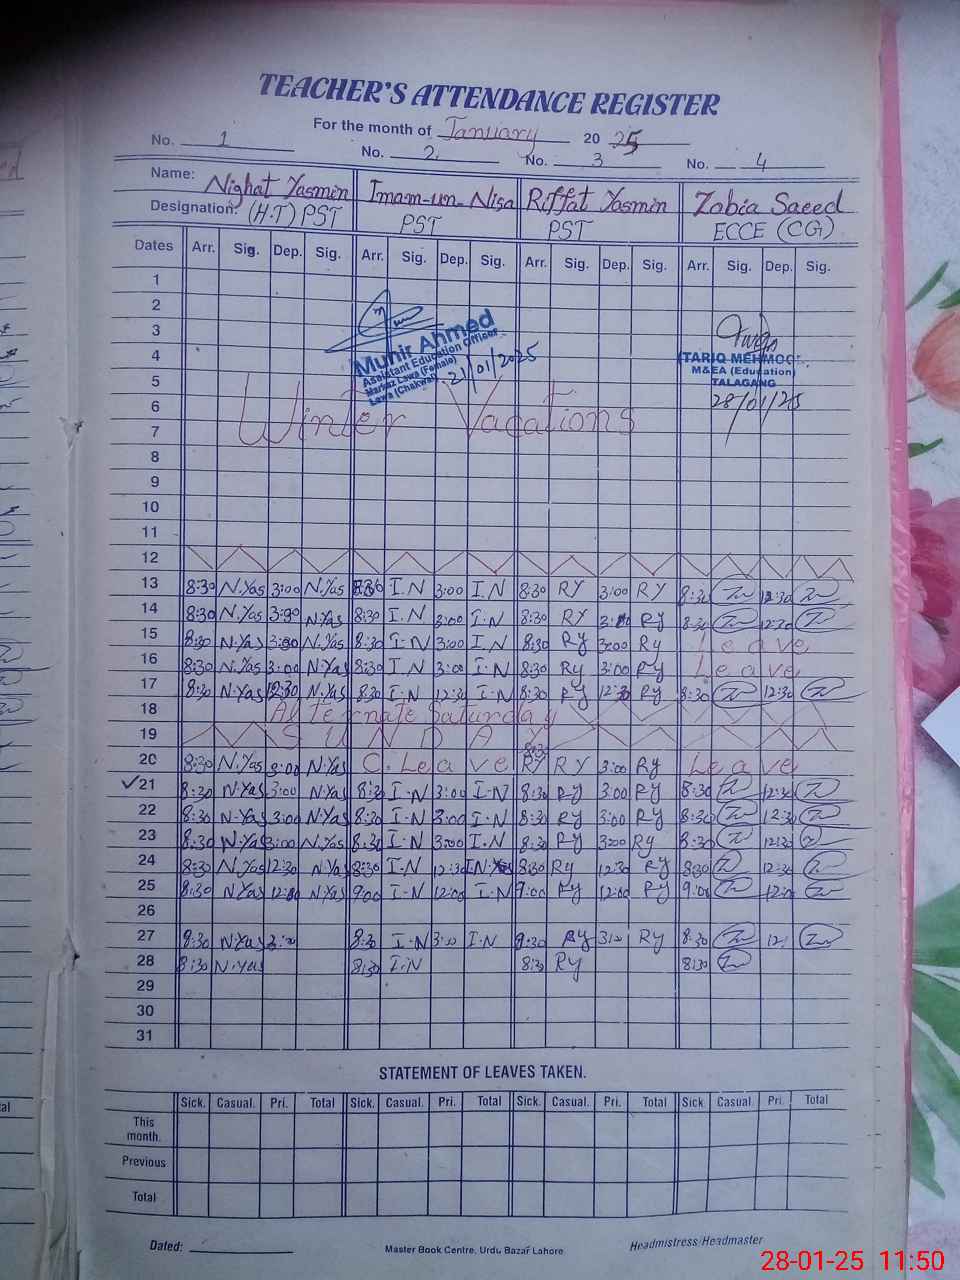 TEACHER'S ATTENDANCE REGISTER
For the month of January 2025
No. 1 No. 2 No. 3 No. 4
Name: Nighat Yasmin Imam-un-Nisa Riffat Yasmin Zobia Saeed
Designation: (H.T) PST PST PST ECCE (CG)
Dates Arr. Sig. Dep. Sig. Arr. Sig. Dep. Sig. Arr. Sig. Dep. Sig. Arr. Sig. Dep. Sig.
1
2
3
Munir Ahmed
Assistant Education Officer
Markaz Lawa (Female)
Lawa (Chakwal)
21/01/2025
4
TARIQ MEHMOO
M&EA (Education)
TALAGANG
28/01/25
5
6
Winter Vacations
7
8
9
10
11
12
13 8:30 N.Yas 3:00 N.Yas 8:30 I.N 3:00 I.N 8:30 RY 3:00 RY 8:30 12:30
14 8:30 N.Yas 3:00 N.Yas 8:30 I.N 3:00 I.N 8:30 RY Ry 8:30 12:30
15 8:30 N.Yas 3:00 N.Yas 8:30 I.N 3:00 I.N 8:30 Ry 3:00 Ry Leave
16 8:30 N.Yas 3:00 N.Yas 8:30 I.N 3:00 I.N 8:30 Ry 3:00 Ry Leave
17 8:30 N.Yas 12:30 N.Yas 8:30 I.N 12:30 I.N 8:30 Ry 12:30 Ry 8:30 12:30
18 Alternate Saturday
19 SUNDAY
20 8:30 N.Yas 3:00 N.Yas C.Leave 8:30 RY RY 3:00 Ry Leave
✓21 8:30 N.Yas 3:00 N.Yas 8:30 I.N 3:00 I.N 8:30 Ry 3:00 Ry 8:30 12:30
22 8:30 N.Yas 3:00 N.Yas 8:30 I.N 3:00 I.N 8:30 Ry 3:00 Ry 8:30 12:30
23 8:30 N.Yas 3:00 N.Yas 8:30 I.N 3:00 I.N 8:30 Ry 3:00 Ry 8:30 12:30
24 8:30 N.Yas 12:30 N.Yas 8:30 I.N 12:30 I.N 8:30 Ry 12:30 Ry 8:30 12:30
25 8:30 N.Yas 12:00 N.Yas 9:00 I.N 12:00 I.N 9:00 Ry 12:00 Ry 9:00 12:00
26
27 N.Yas 8:30 I.N 3:00 I.N Ry Ry 8:30
28 8:30 N.Yas 8:30 I.N 8:30 Ry 8:30
29
30
31
STATEMENT OF LEAVES TAKEN.
Sick. Casual. Pri. Total Sick. Casual. Pri. Total Sick. Casual. Pri. Total Sick Casual. Pri. Total
This month.
Previous
Total
Dated:
Master Book Centre, Urdu Bazar Lahore
Headmistress/Headmaster
28-01-25 11:50